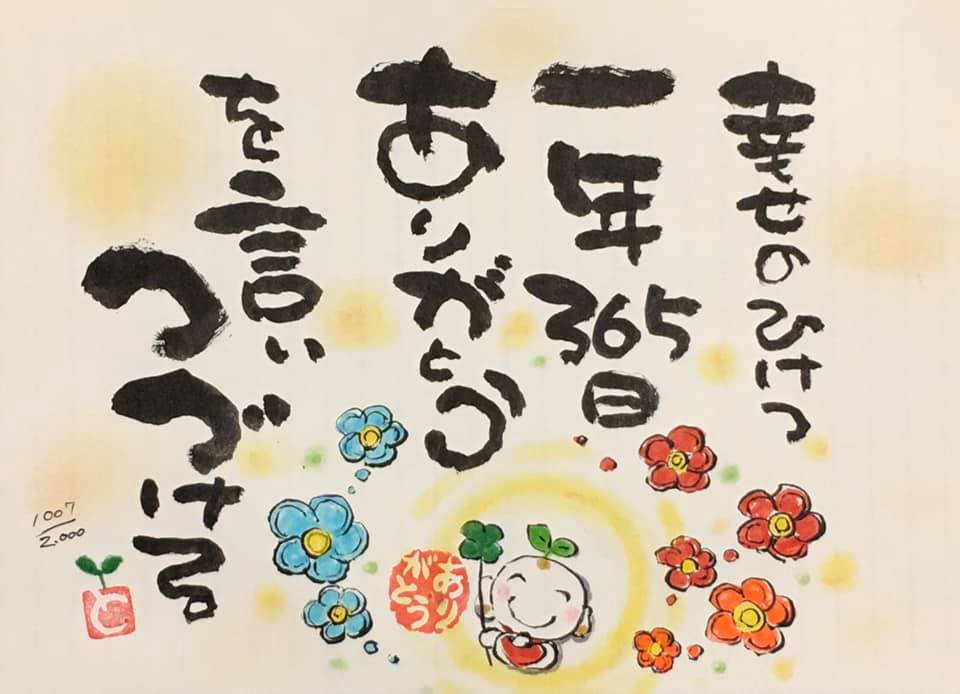 幸せのひけつ
一年365日
ありがとう
を言い
つづける
1007
2,000
ありがとう
と